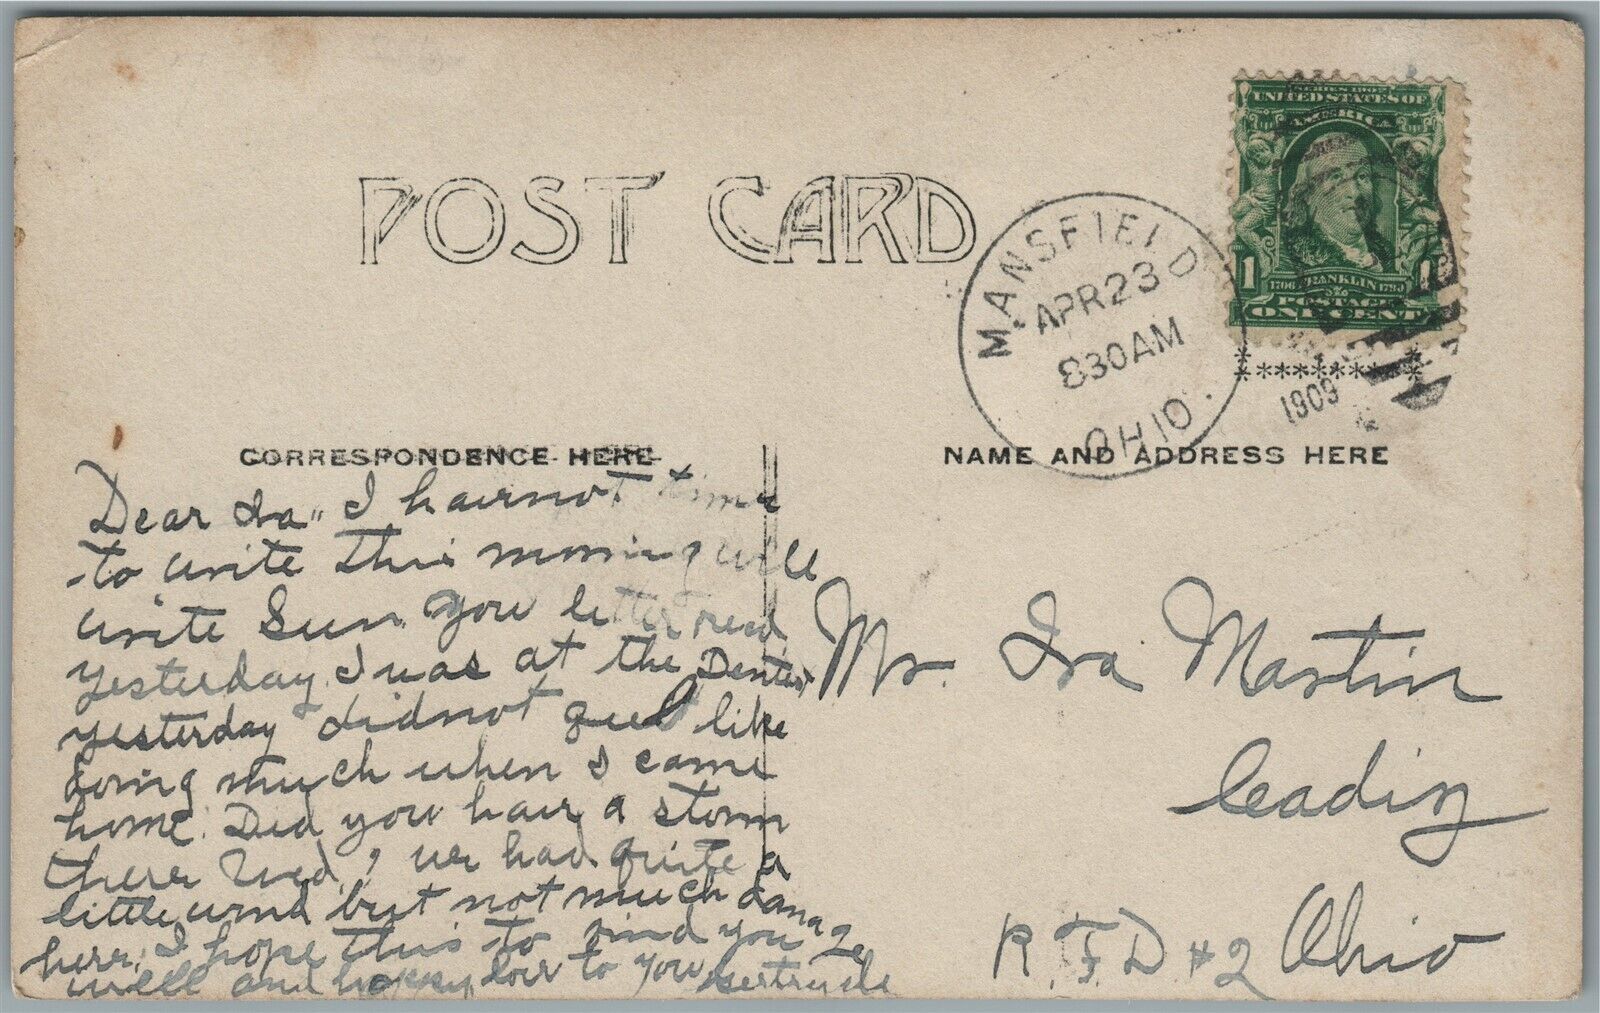 POST CARD
MANSFIELD
APR 23
830AM
OHIO.
1909
SERIES 1902
UNITED STATES OF
AMERICA
1 1
1706 FRANKLIN 1790
POSTAGE
ONE CENT
**********
CORRESPONDENCE HERE
NAME AND ADDRESS HERE
Dear Ira" I have not time
to write this morning will
write Sun. your letter recd
yesterday. I was at the Dentist
yesterday did not feel like
doing much when I came
home. Did you have a storm
there Wed.? we had quite a
little wind but not much damage
here. I hope this to find you
well and happy, love to you Gertrude
Mr. Ira Martin
R.F.D #2 Ohio